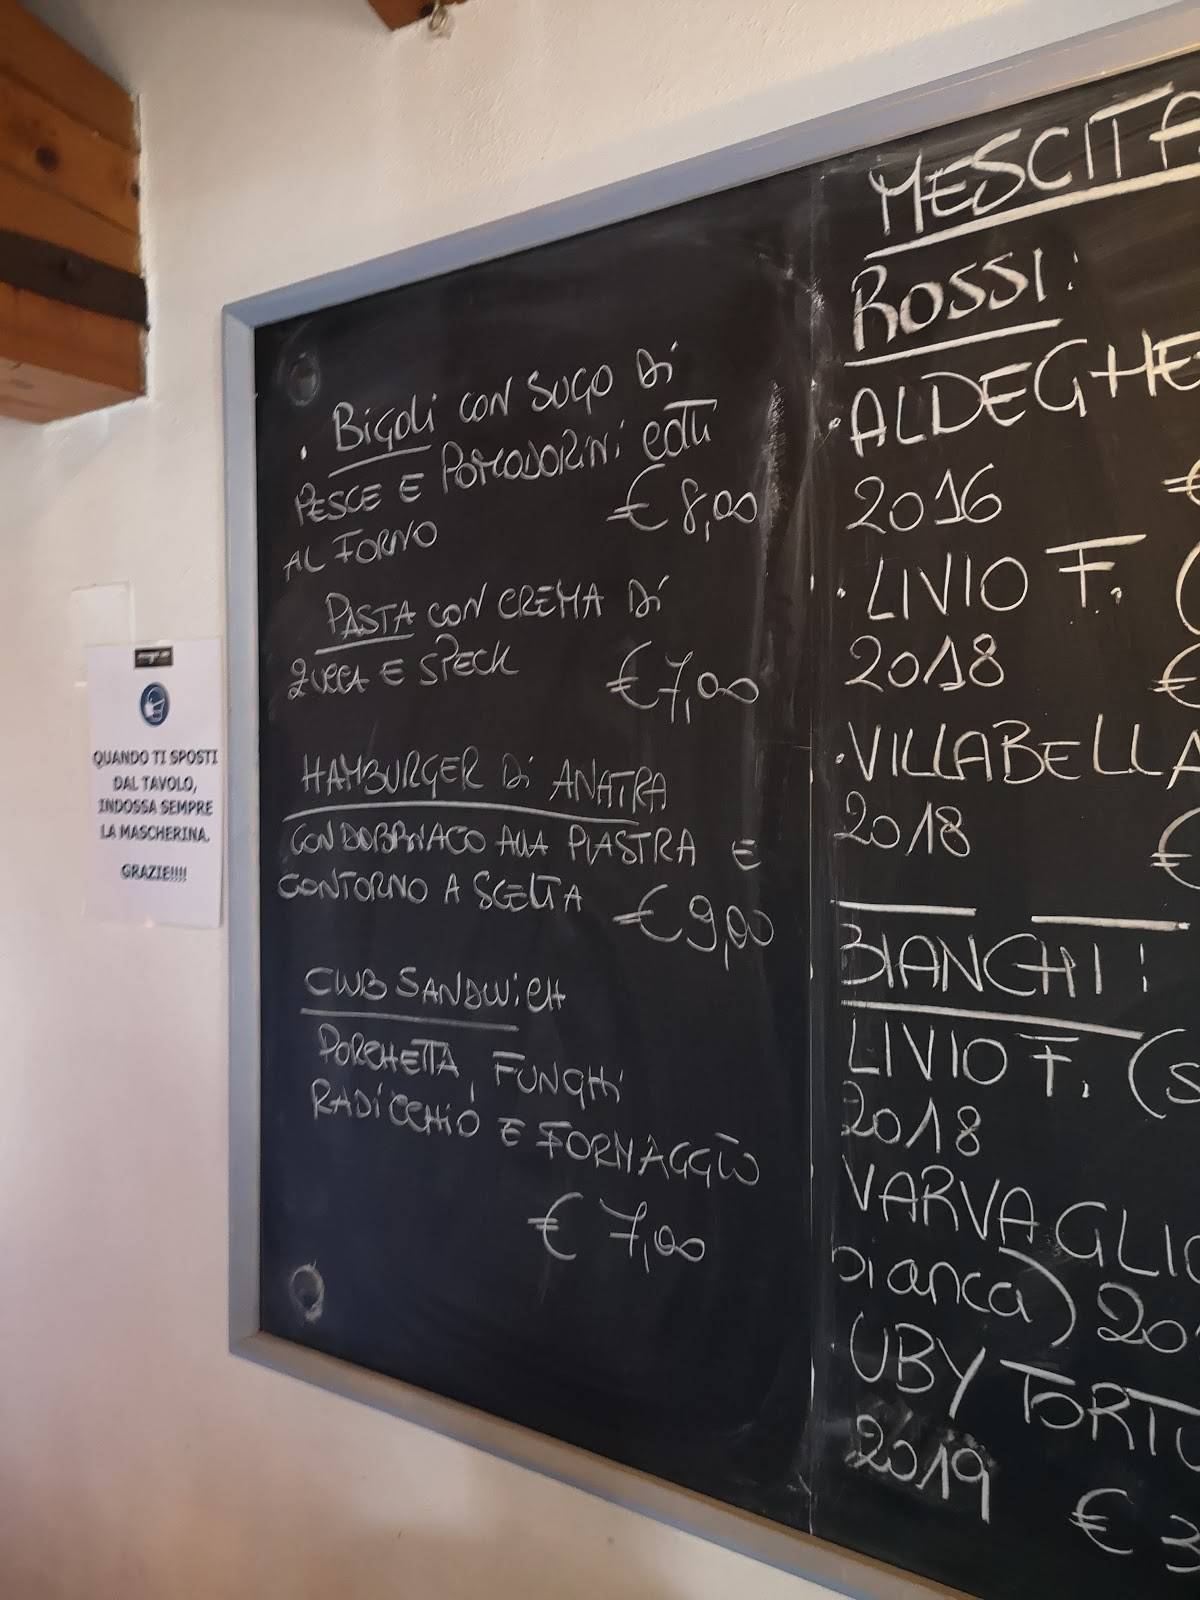 . Bigoli CON SUGO Di
PESCE E POMODORINI COTTI
AL FORNO
€ 8,00
PASTA CON CREMA Di
ZUCCA E SPECK
€ 7,00
HAMBURGER Di ANATRA
CON DOBBIACO ALLA PIASTRA E
CONTORNO A SCELTA
€ 9,00
CLUB SANDWICH
PORCHETTA, FUNGHI
RADICCHIO E FORMAGGIO
€ 7,00
MESCITA
ROSSI:
· ALDEGHE
2016 €
· LIVIO F. (
2018 €
· VILLABELLA
2018 €
BIANCHI:
LIVIO F. (S
2018
VARVAGLIO
bianca) 20
UBY TORTU
2019
€ 3
QUANDO TI SPOSTI
DAL TAVOLO,
INDOSSA SEMPRE
LA MASCHERINA.
GRAZIE!!!!